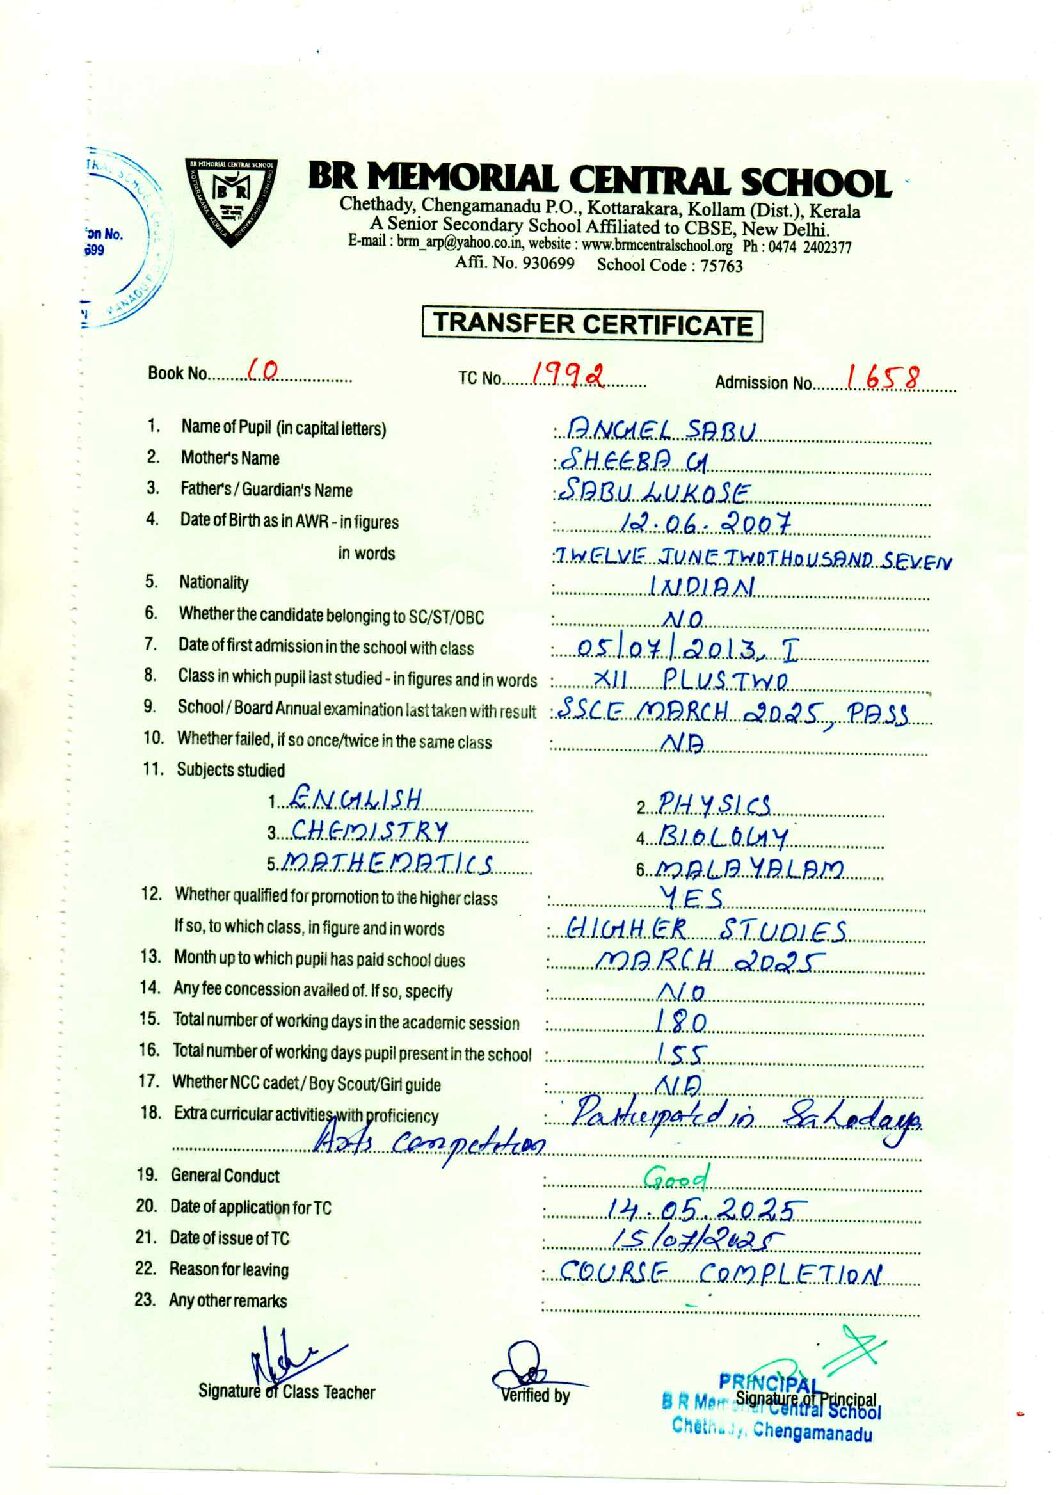 BR MEMORIAL CENTRAL SCHOOL
BR MEMORIAL CENTRAL SCHOOL
Chethady, Chengamanadu P.O., Kottarakara, Kollam (Dist.), Kerala
A Senior Secondary School Affiliated to CBSE, New Delhi.
E-mail : brm_arp@yahoo.co.in, website : www.brmcentralschool.org Ph : 0474 2402377
Affi. No. 930699 School Code : 75763
on No.
699
TRANSFER CERTIFICATE
Book No. 10 TC No. 1992 Admission No. 1658
1. Name of Pupil (in capital letters) : ANGEL SABU
2. Mother's Name : SHEEBA G
3. Father's / Guardian's Name : SABU LUKOSE
4. Date of Birth as in AWR - in figures : 12.06.2007
in words : TWELVE JUNE TWO THOUSAND SEVEN
5. Nationality : INDIAN
6. Whether the candidate belonging to SC/ST/OBC : NO
7. Date of first admission in the school with class : 05/07/2013, I
8. Class in which pupil last studied - in figures and in words : XII PLUS TWO
9. School / Board Annual examination last taken with result : SSCE MARCH 2025, PASS
10. Whether failed, if so once/twice in the same class : NA
11. Subjects studied
1. ENGLISH 2. PHYSICS
3. CHEMISTRY 4. BIOLOGY
5. MATHEMATICS 6. MALAYALAM
12. Whether qualified for promotion to the higher class : YES
If so, to which class, in figure and in words : HIGHER STUDIES
13. Month up to which pupil has paid school dues : MARCH 2025
14. Any fee concession availed of. If so, specify : NO
15. Total number of working days in the academic session : 180
16. Total number of working days pupil present in the school : 155
17. Whether NCC cadet / Boy Scout/Girl guide : NA
18. Extra curricular activities with proficiency : Participated in Sahodaya
Arts competition
19. General Conduct : Good
20. Date of application for TC : 14.05.2025
21. Date of issue of TC : 15/07/2025
22. Reason for leaving : COURSE COMPLETION
23. Any other remarks : -
Signature of Class Teacher Verified by Signature of Principal
PRINCIPAL
B R Memorial Central School
Chethady, Chengamanadu